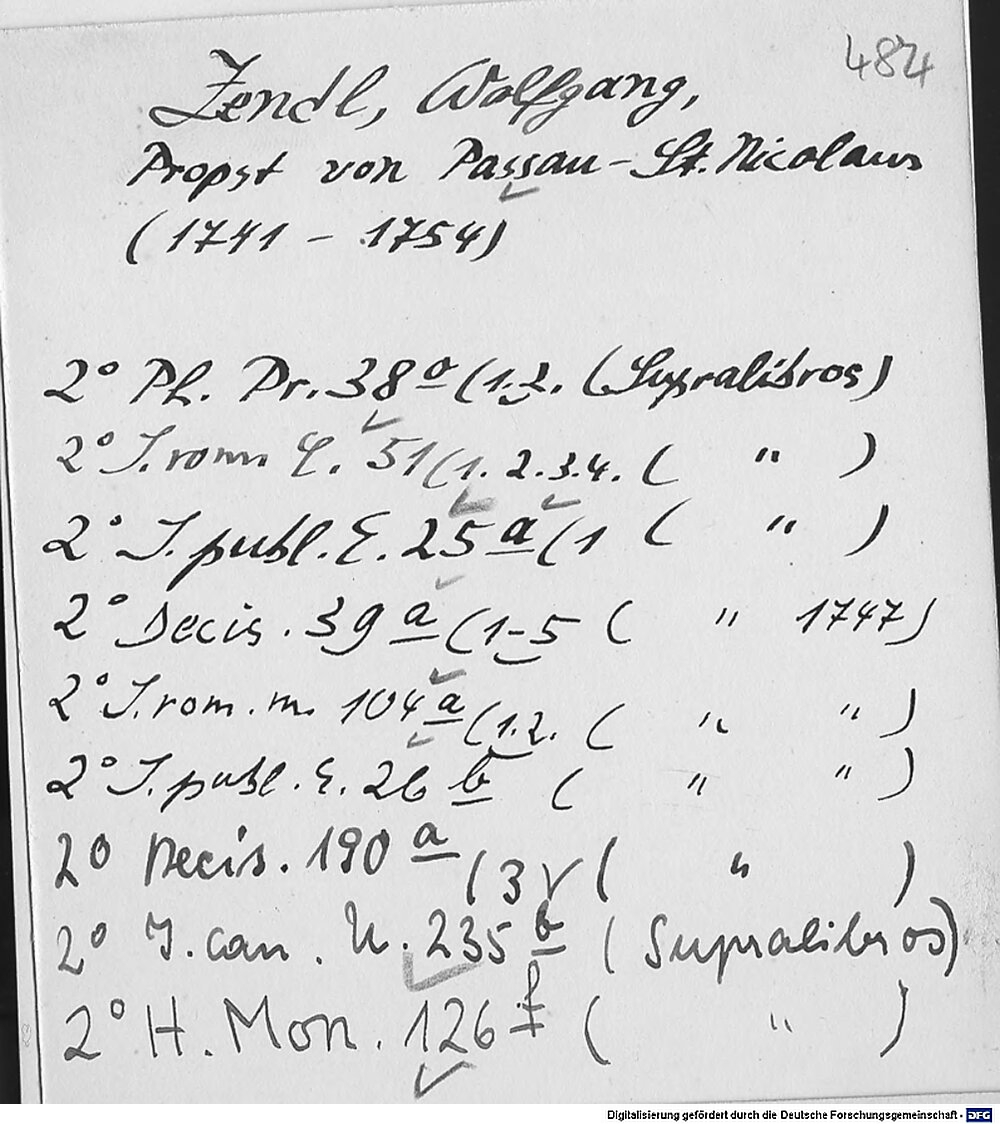 484
Zendl, Wolfgang,
Propst von Passau-St. Nicolaus
(1741 - 1754)
2° Ph. Pr. 38 a (1.2. (Supralibros)
2° J. rom. C. 51 (1. 2.3.4. ( " )
2° J. publ. E. 25 a (1 ( " )
2° Decis. 39 a (1-5 ( " 1747)
2° J. rom. m. 104 a (1.2. ( " " )
2° J. publ. E. 26 b ( " " )
2° Decis. 190 a (3 ( " )
2° J. can. U. 235 b (Supralibros)
2° H. Mon. 126 f ( " )
Digitalisierung gefördert durch die Deutsche Forschungsgemeinschaft - DFG